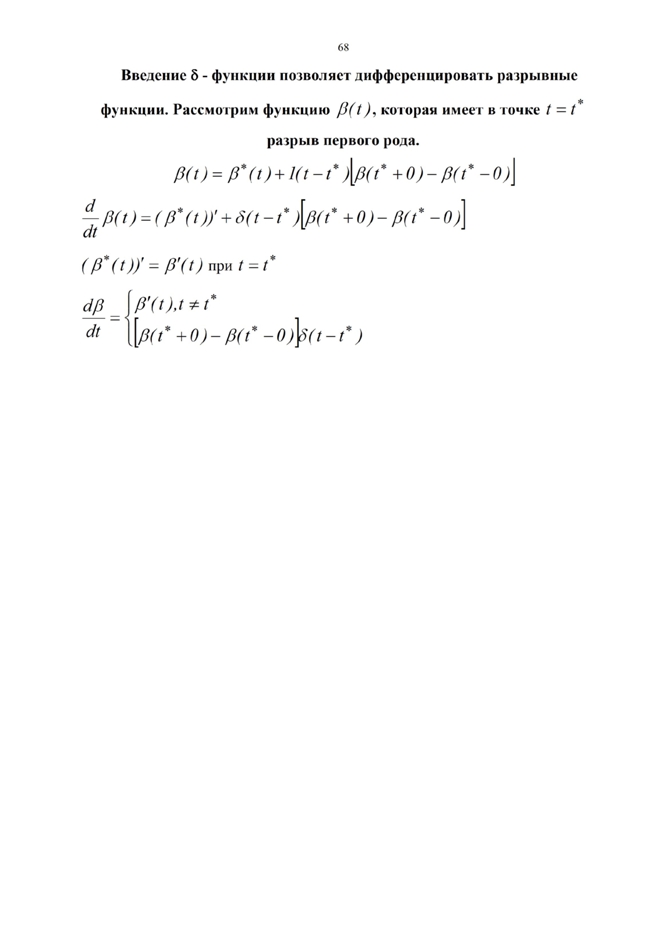 68
Введение δ - функции позволяет дифференцировать разрывные
функции. Рассмотрим функцию β(t), которая имеет в точке t = t*
разрыв первого рода.
β(t) = β*(t) + 1(t − t*)[β(t* + 0) − β(t* − 0)]
d/dt β(t) = (β*(t))′ + δ(t − t*)[β(t* + 0) − β(t* − 0)]
(β*(t))′ = β′(t) при t = t*
dβ/dt = { β′(t), t ≠ t*
[β(t* + 0) − β(t* − 0)]δ(t − t*)